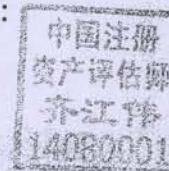 ：
中国注册
资产评估师
齐江伟
14080001